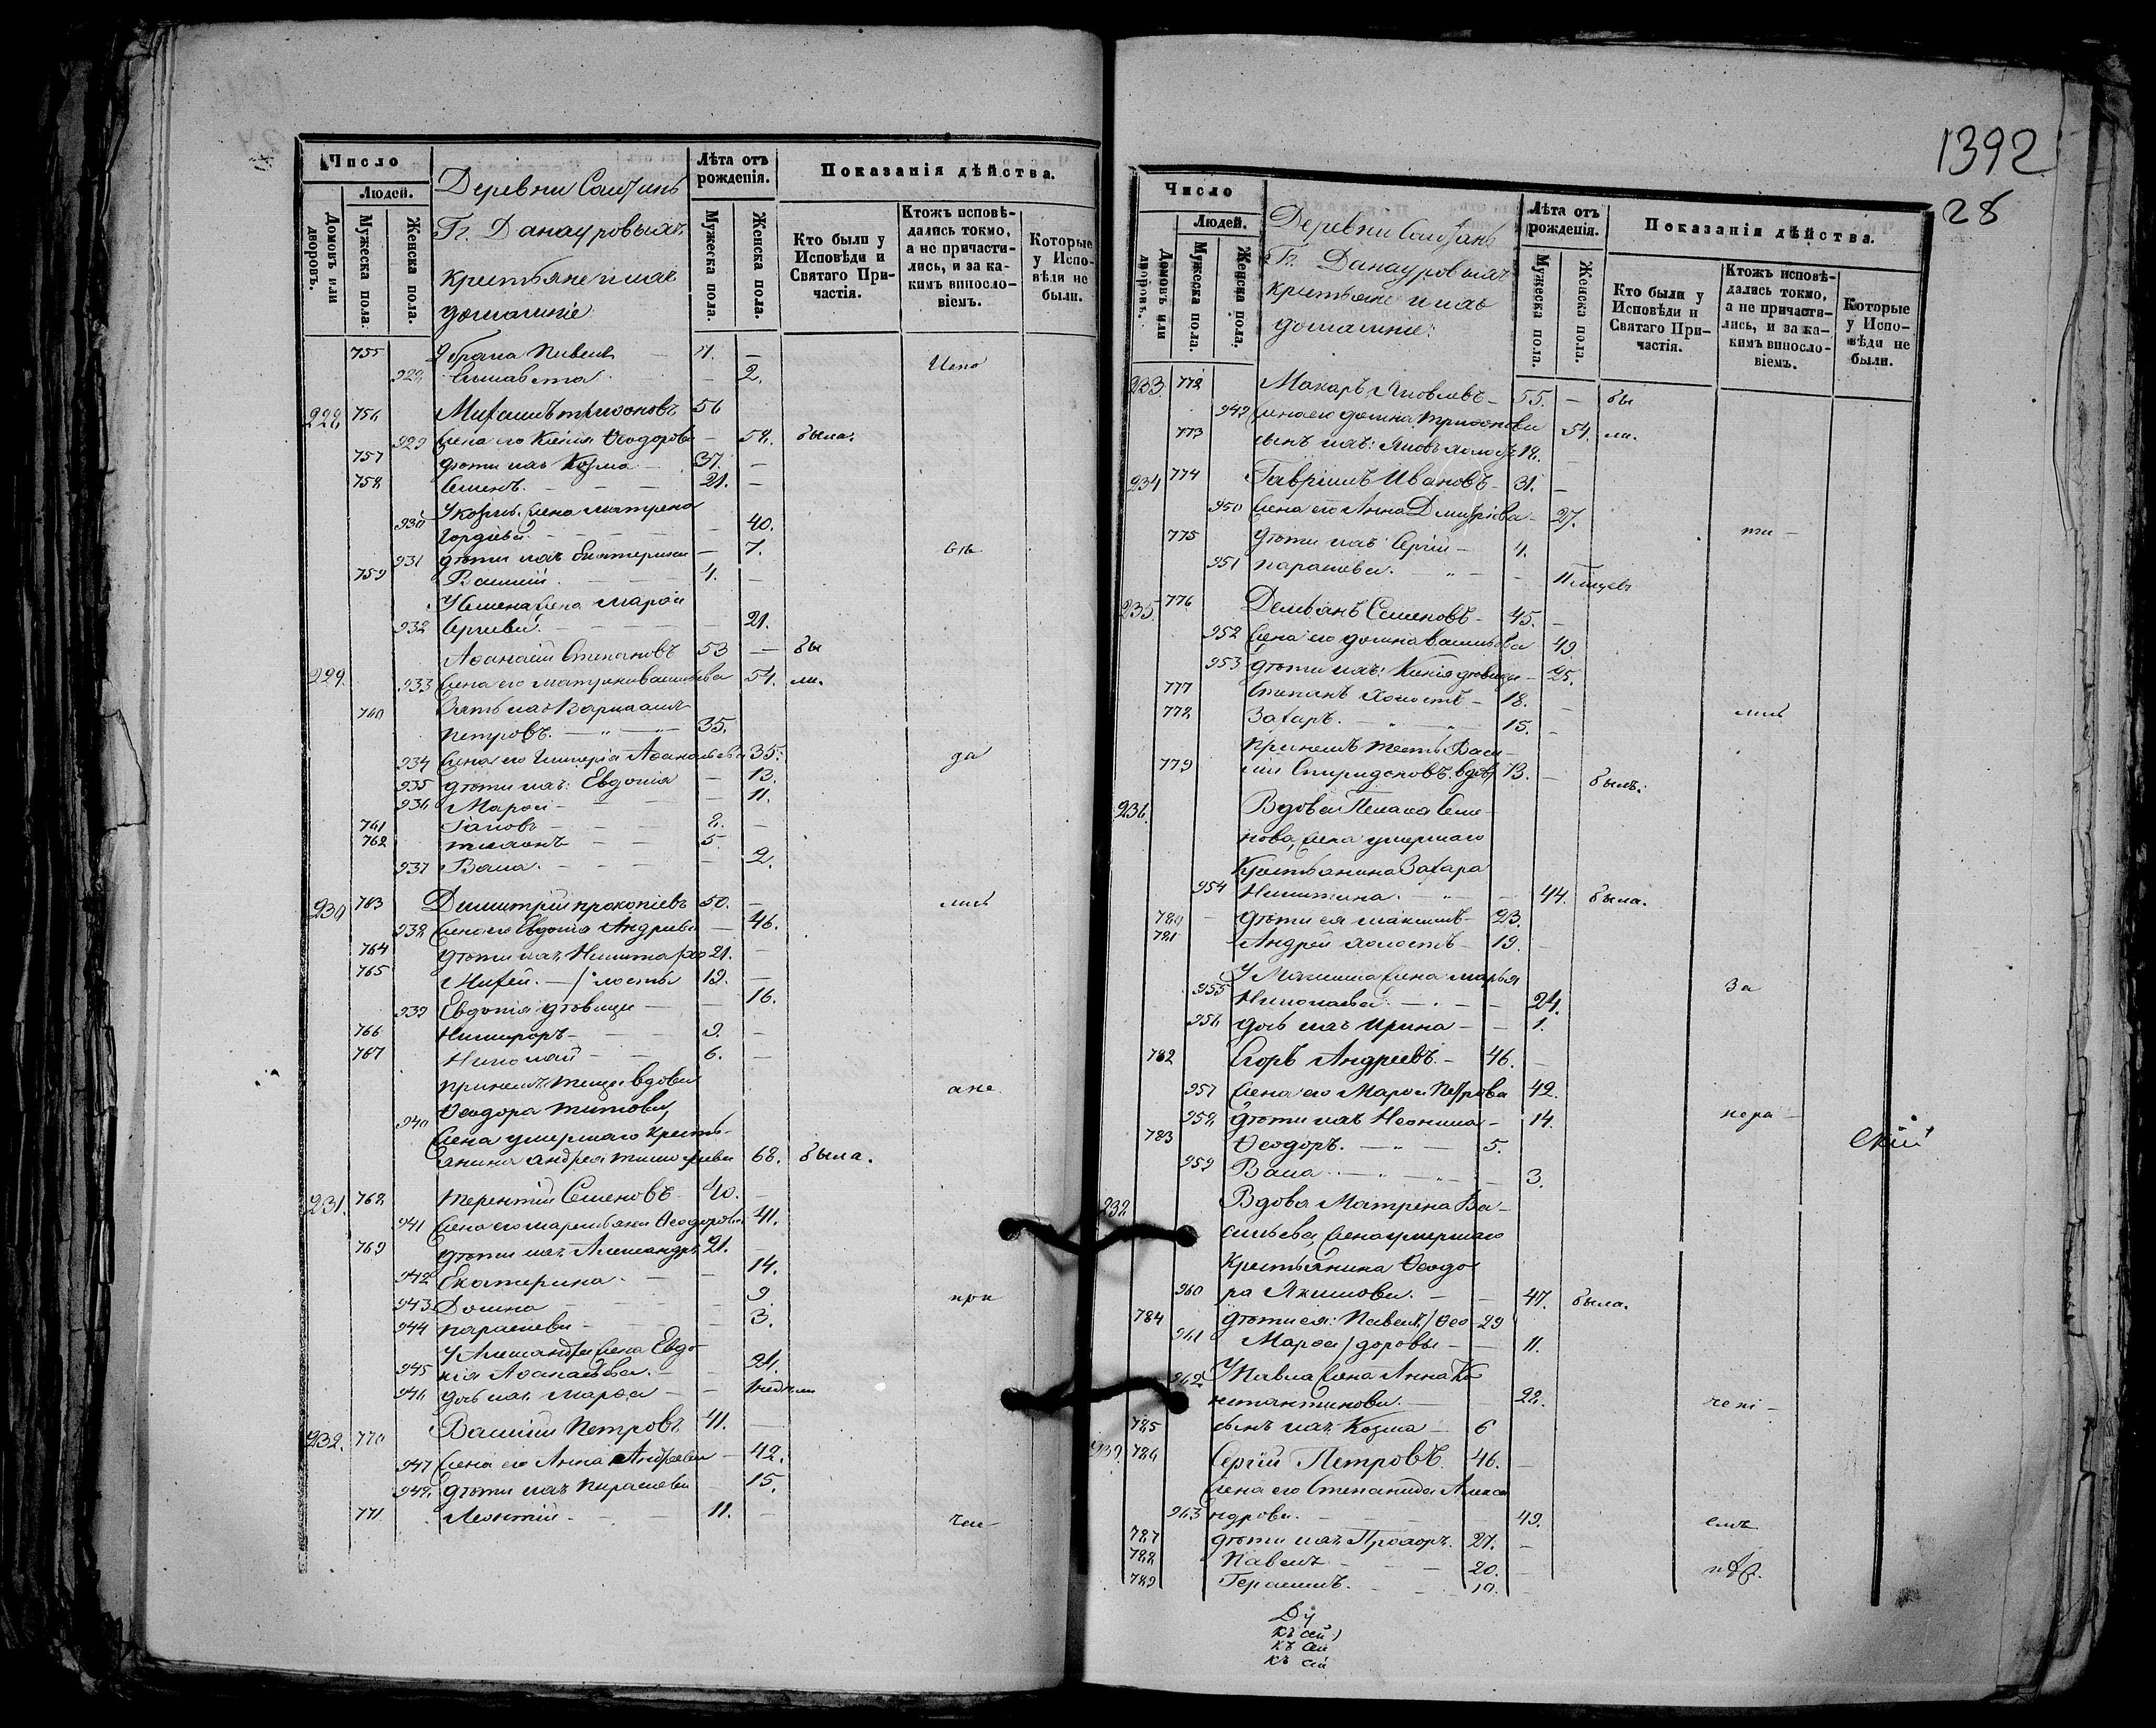 Число
Людей.
Домовъ или дворовъ.
Мужеска пола.
Женска пола.
Деревни
Гг. Данауровыхъ
крестьяне и ихъ
домашніе
Лѣта отъ рожденія.
Мужеска пола.
Женска пола.
Показанія дѣйства.
Кто были у Исповѣди и Святаго Причастія.
Ктожъ исповѣдались токмо, а не причастились, и за какимъ винословіемъ.
Которые у Исповѣди не были.
755 Павелъ 4. —
928 Елисавета — 2. Испо
228 756 56
929 Жена его Ксенія Ѳеодорова — 58. была.
757 дѣти ихъ Козма — 37. —
758 Семенъ. — 21. —
930 У Козмы жена Матрена
Гордіева — 40.
931 дѣти ихъ Екатерина — 7. вѣ
759 Василій 4. —
У Семена жена Марѳа
932 Сергіева. — 21.
Аѳанасій Степановъ 53 — бы
229. 933 Жена его Матрена Васильева 54. ли.
760 Зять ихъ Варлаамъ
Петровъ. 35.
934 Жена его Гликерія Аѳанасьева 35. да
935 дѣти ихъ: Евдокія — 13.
936 Марѳа — 11.
761 Іаковъ 8. —
762 Тихонъ 5
937 Васса. — 2.
230 763 Димитрій Прокопіевъ 50. — лись
938 Жена его Евдокія Андреева — 46.
764 дѣти ихъ Никита /хо 21. —
765 Михей. — / лосты 18. —
939 Евдокія дѣвица — 16.
766 Никифоръ — 9. —
767 Николай — 6. —
Принятъ теща вдова а не
940 Ѳеодора Титова,
Жена умершаго кресть-
янина Андрея Тимофеева 68. была.
231. 768 Терентій Семеновъ 40. —
941 Жена его Маремьяна Ѳеодорова 41.
769 дѣти ихъ Александръ 21.
942 Екатерина. — 14.
943 Домна — 9. при
944 Параскева — 3.
У Александра жена Евдо-
945 кія Аѳанасьева. — 21.
946 дочь ихъ Марѳа —
232. 770 Василій Петровъ 41. —
947 Жена его Анна Андреева — 42.
948 дѣти ихъ Параскева 15.
771 Леонтій — 11. — час-
1392
28
Число
Людей.
Домовъ или дворовъ.
Мужеска пола.
Женска пола.
Деревни
Гг. Данауровыхъ
крестьяне и ихъ
домашніе:
Лѣта отъ рожденія.
Мужеска пола.
Женска пола.
Показанія дѣйства.
Кто были у Исповѣди и Святаго Причастія.
Ктожъ исповѣдались токмо, а не причастились, и за какимъ винословіемъ.
Которые у Исповѣди не были.
233. 772 Макаръ Яковлевъ — 55. — бы
949 Жена его Домна Трифонова 54. ли.
773 сынъ ихъ: Яковъ холостъ 18.
234 774 Гавріилъ Ивановъ — 31. —
950 Жена его Анна Дмитріева — 27. ти —
775 дѣти ихъ Сергій — 4.
951 Параскева.
235. 776 Демьянъ Семеновъ — 45. —
952 Жена его Домна Васильева 49.
953 дѣти ихъ: Ксенія дѣвица — 25.
777 Степанъ холостъ — 18. —
778 Захаръ. — 15. — лись
779 Василій Спиридоновъ. вдовъ 73. — былъ.
236. Вдова Пелагея Семе-
нова, жена умершаго
крестьянина Захара
954 Никитина. — 44. была.
780 дѣти ея Максимъ — 23.
781 Андрей холостъ — 19. —
У Максима жена Марья
955 Николаева — 24. за
956 дочь ихъ Ирина — 1.
782 Егоръ Андреевъ. — 46. —
957 Жена его Марѳа Петрова 42.
958 дѣти ихъ Неонила — 14. нера —
783 Ѳеодоръ. 5.
959 Васса — 3.
Вдова Матрена Ва-
сильева, жена умершаго
крестьянина Ѳеодо
960 ра Якимова. — 47. была.
784 дѣти ея: Павелъ / Ѳео 29
961 Марѳа / доровы — 11.
962 У Павла жена Анна Ко
нстантинова. — 22. чені —
785 сынъ ихъ Козма — 6
786 Сергій Петровъ. 46. —
Жена его Степанида Алекса
963 ндрова. 49. емъ
787 дѣти ихъ Прохоръ. 27. —
788 Павелъ 20. —
789 Герасимъ. 19. —
Къ сей